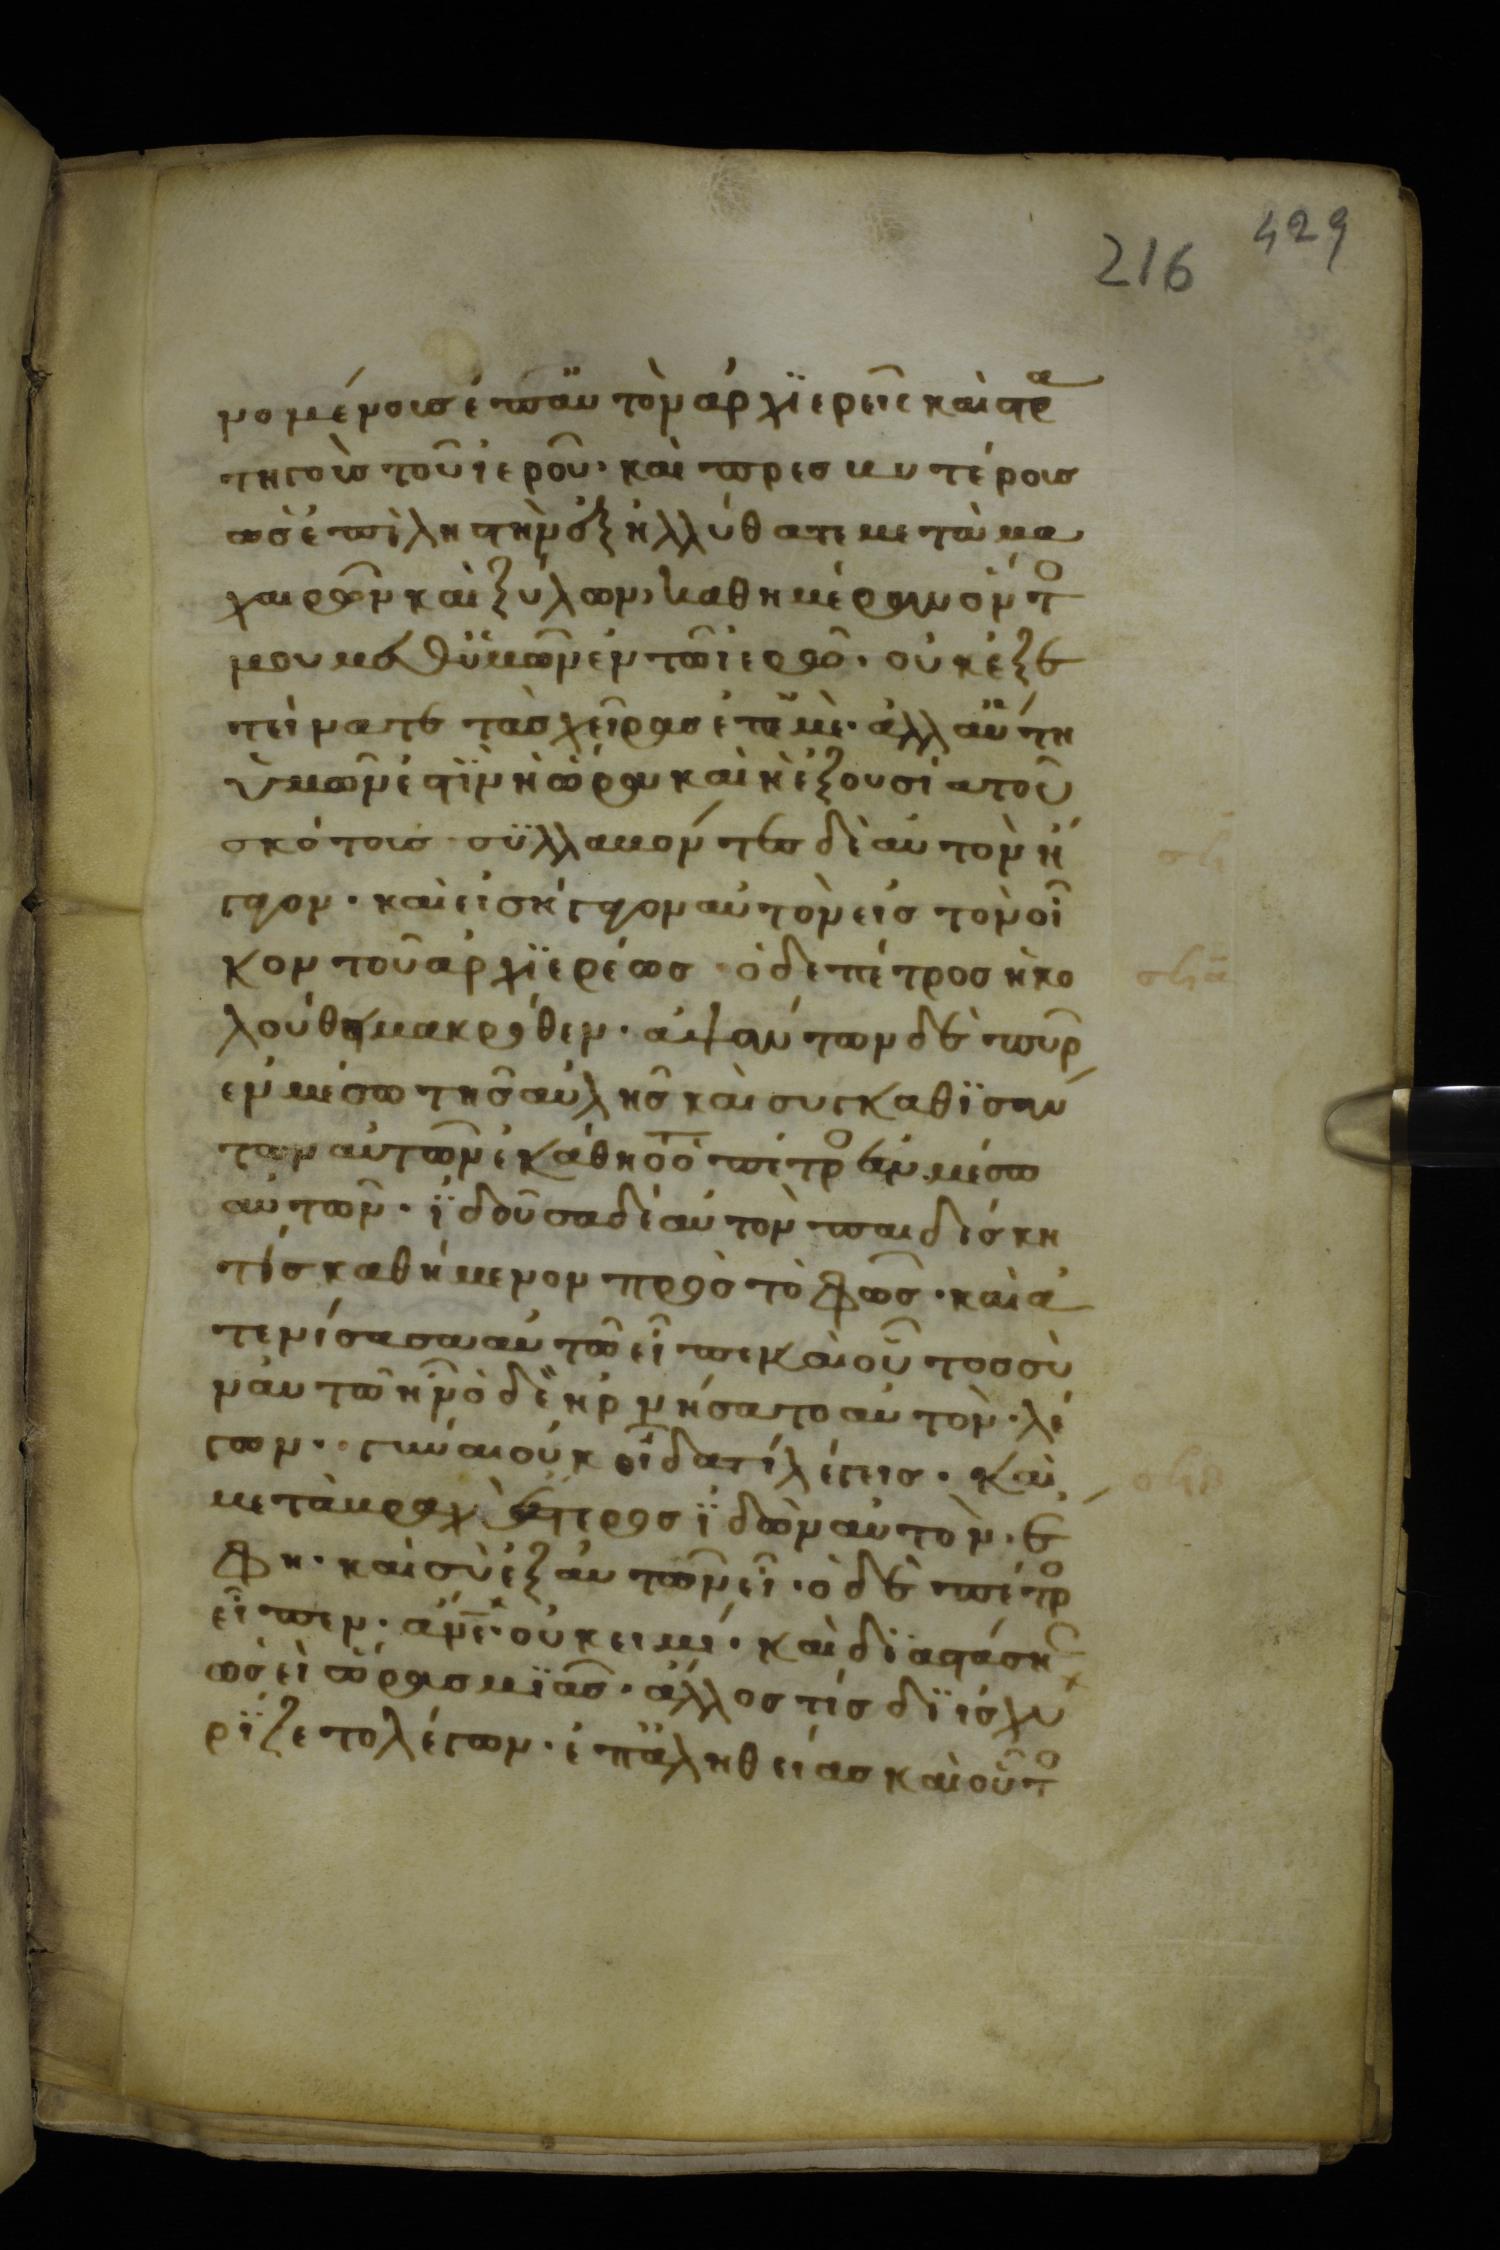 429
216
νομένους ἐπαὐτὸν ἀρχϊερεῖς καὶ στρα
τηγοὺς τοῦ ἱεροῦ· καὶ πρεσβυτέρους
ὡς ἐπὶ λῃστὴν ἐξηλλύθατε μετὰ μα
χαιρῶν καὶ ξύλων, καθημέραν ὄντο
μου μεθ ϋμῶν ἐν τῶ ἱερῶ· οὐκ ἐξε
τείνατε τὰς χεῖρας ἐπἐμὲ· ἀλλ αὕτη
ὑμῶν ἐστὶν ἡ ὥρα καὶ ἡ ἐξουσία τοῦ
σκότους· συλλαβόντες δὲ αὐτὸν ἤ
γαγον· καὶ εἰσήγαγον αὐτὸν εἰς τὸν οἶ
κον τοῦ ἀρχϊερέως· ὁ δε πέτρος ἠκο
λούθη μακρόθεν· ἁψάντων δὲ πῦρ
ἐν μέσω τῆς αὐλῆς καὶ συγκαθϊσάν
των αὐτῶν ἐκάθητο ὁ πέτρο ἐν μέσω
αὐτῶν· ϊδοῦσα δὲ αὐτὸν παιδίσκη
τίς καθήμενον πρὸς τὸ φῶς· καὶ ἀ
τενίσασα αὐτῶ εἶπε καὶ οὗτος σὺ
ν αὐτῶ ἦν ὁ δὲ ἠρνήσατο αὐτὸν· λέ
γων· γύναι οὐκ οἶδα τί λέγεις· καὶ
μετὰ βραχὺ ἕτερος ϊδὼν αὐτὸν· ἔ
φη· καὶ σὺ ἐξ αὐτῶν εἶ· ὁ δὲ πέτρο
εἶπεν· ἄνε· οὐκ εἰμί· καὶ διαστάση
ὡσεὶ ὥρας μϊᾶς· ἄλλος τίς δϊϊσχυ
ρΐζετο λέγων· ἐπἀληθείας καὶ οὗτο